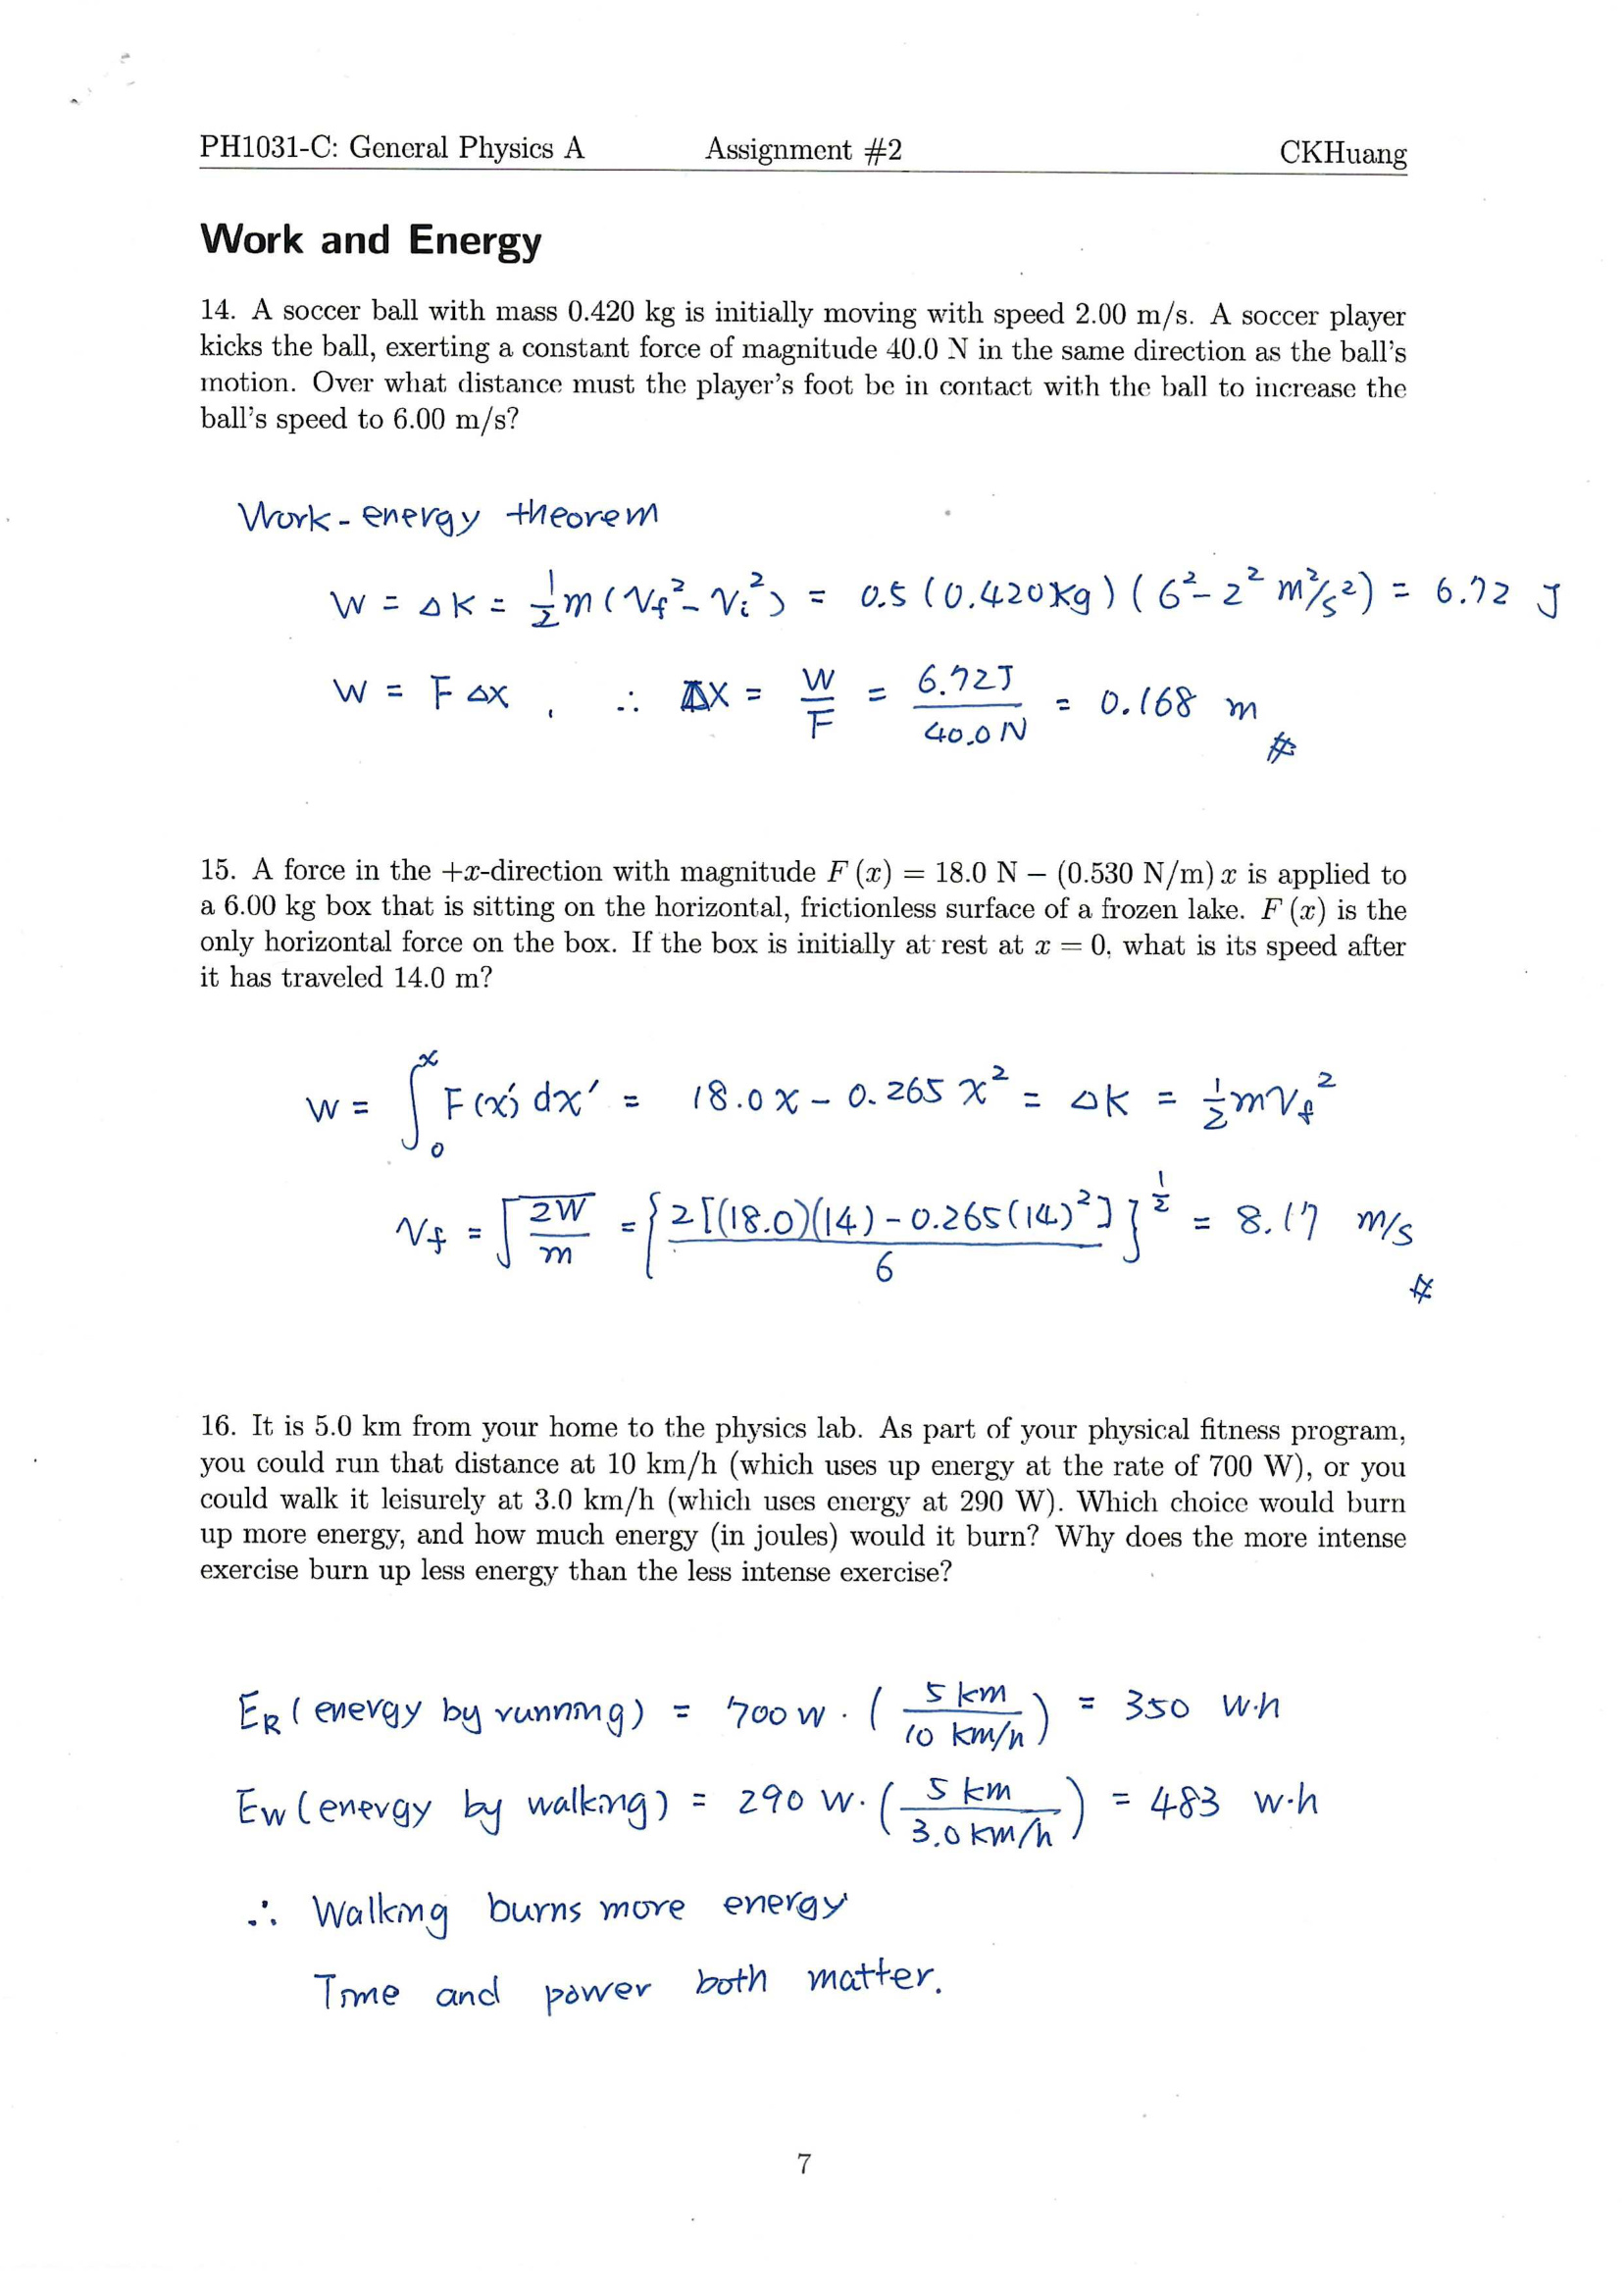 PH1031-C: General Physics A Assignment #2 CKHuang
Work and Energy
14. A soccer ball with mass 0.420 kg is initially moving with speed 2.00 m/s. A soccer player
kicks the ball, exerting a constant force of magnitude 40.0 N in the same direction as the ball's
motion. Over what distance must the player's foot be in contact with the ball to increase the
ball's speed to 6.00 m/s?
Work-energy theorem
W = ΔK = ½m(Vf² - Vi²) = 0.5 (0.420kg) (6² - 2² m²/s²) = 6.72 J
W = FΔx, ∴ Δx = W/F = 6.72J/40.0N = 0.168 m #
15. A force in the +x-direction with magnitude F (x) = 18.0 N − (0.530 N/m) x is applied to
a 6.00 kg box that is sitting on the horizontal, frictionless surface of a frozen lake. F (x) is the
only horizontal force on the box. If the box is initially at rest at x = 0, what is its speed after
it has traveled 14.0 m?
W = ∫₀ˣ F(x') dx' = 18.0x - 0.265 x² = ΔK = ½mVf²
Vf = √(2W/m) = {2[(18.0)(14) - 0.265(14)²]/6}^½ = 8.17 m/s #
16. It is 5.0 km from your home to the physics lab. As part of your physical fitness program,
you could run that distance at 10 km/h (which uses up energy at the rate of 700 W), or you
could walk it leisurely at 3.0 km/h (which uses energy at 290 W). Which choice would burn
up more energy, and how much energy (in joules) would it burn? Why does the more intense
exercise burn up less energy than the less intense exercise?
E_R (energy by running) = 700 W · (5 km/10 km/h) = 350 W·h
E_W (energy by walking) = 290 W · (5 km/3.0 km/h) = 483 W·h
∴ Walking burns more energy
Time and power both matter.
7